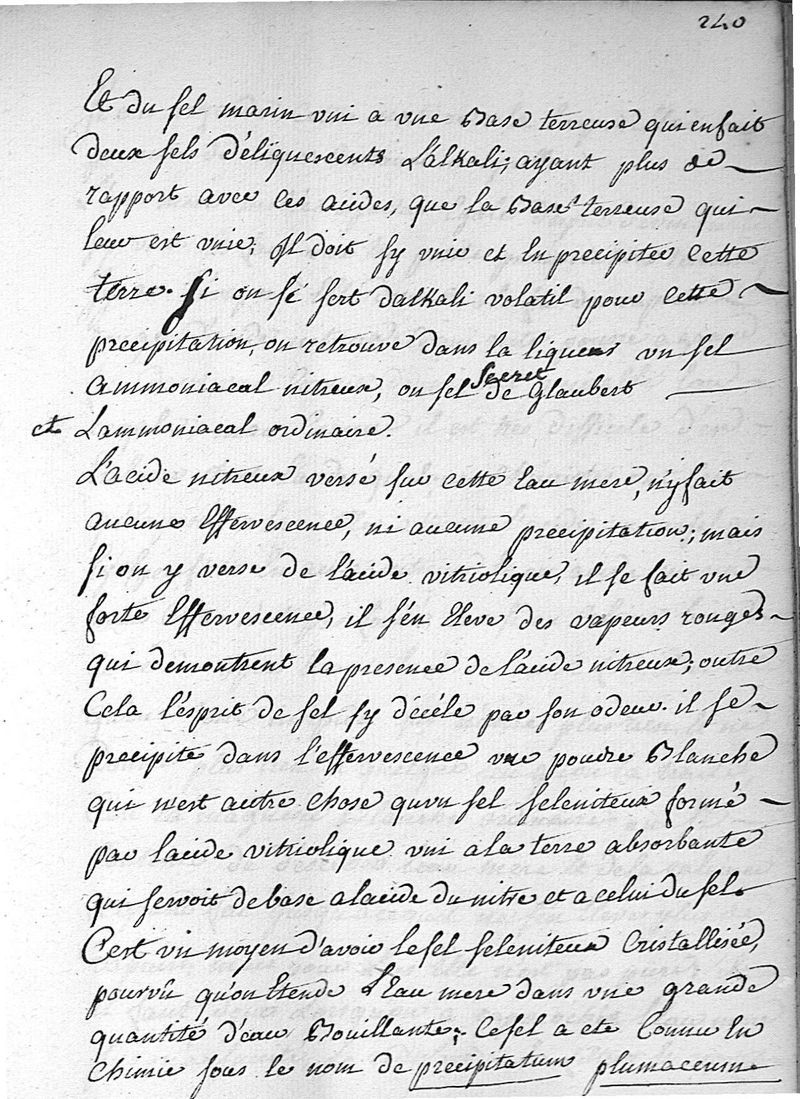 240
Et du sel marin vni a vne Base terreuse qui en fait
deux sels déliquescents L'alkali; ayant plus de
rapport avec ces acides, que la Base terreuse qui
leur est vnie; Il doit s'y vnir et En precipiter Cette
terre. Si on se sert dalkali volatil pour Cette
precipitation, on retrouve dans la liqueur vn sel
ammoniacal nitreux, ou sel Secret de Glaubert
et Lammoniacal ordinaire.
L'acide nitreux versé sur cette Eau mere, n'y fait
aucune Effervescence, ni aucune precipitation; mais
si on y verse de l'acide vitriolique, il se fait vne
forte Effervescence, il s'en Eleve des vapeurs rouges
qui demontrent la presence de l'acide nitreux; outre
Cela l'esprit de sel s'y décéle par son odeur. il se
precipite dans l'effervescence vne poudre Blanche
qui n'est autre Chose qu'vn sel seleniteux formé
par lacide vitriolique vni a la terre absorbante
qui servoit de base a lacide du nitre et a celui du sel.
C'est vn moyen d'avoir le sel seleniteux Cristallisée,
pourvû qu'on Etende L'Eau mere dans vne grande
quantité d'eau Bouillante; Ce sel a eté Connu En
Chimie sous le nom de precipitatum plumaceum